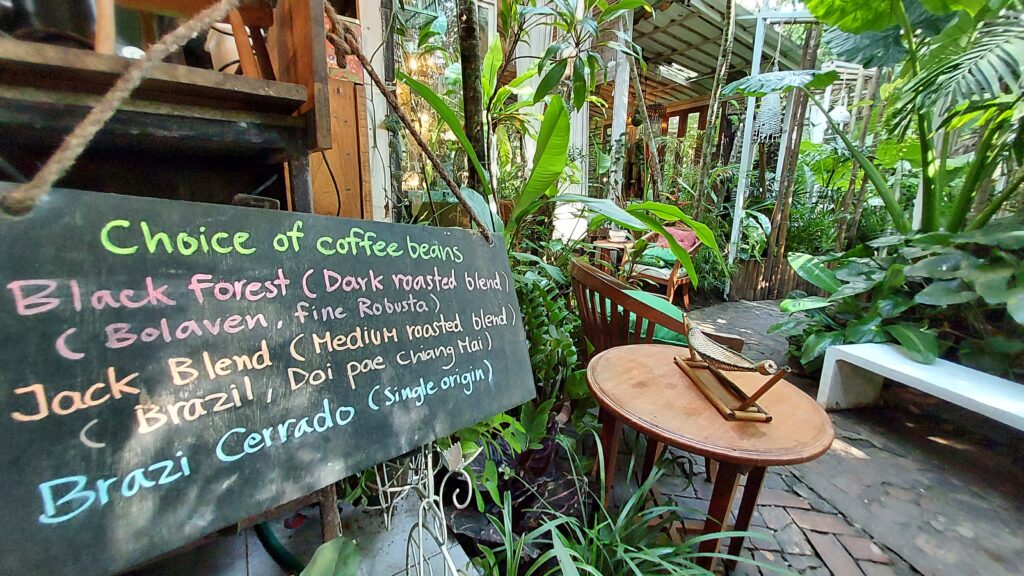 Choice of coffee beans
Black Forest (Dark roasted blend)
(Bolaven, fine Robusta)
Jack Blend (Medium roasted blend)
(Brazil, Doi pae Chiang Mai)
Brazi Cerrado (Single origin)